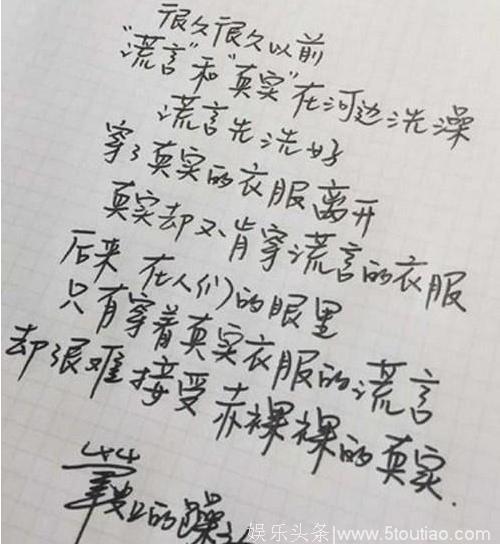 很久很久以前
"谎言"和"真实"在河边洗澡
谎言先洗好
穿了真实的衣服离开
真实却不肯穿谎言的衣服
后来 在人们的眼里
只有穿着真实衣服的谎言
却很难接受赤裸裸的真实.
的躁
娱乐头条|www.5toutiao.com